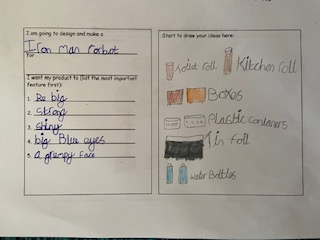 I am going to design and make a
Iron man rorbot
for
I want my product to (list the most important
feature first):
1. Be big
2. Strong
3. shiny
4. big Blue eyes
5. a grumpy face
Start to draw your ideas here:
Toilet roll
Kitchen roll
Boxes
Plastic contaners
Tin foil
water Bottles